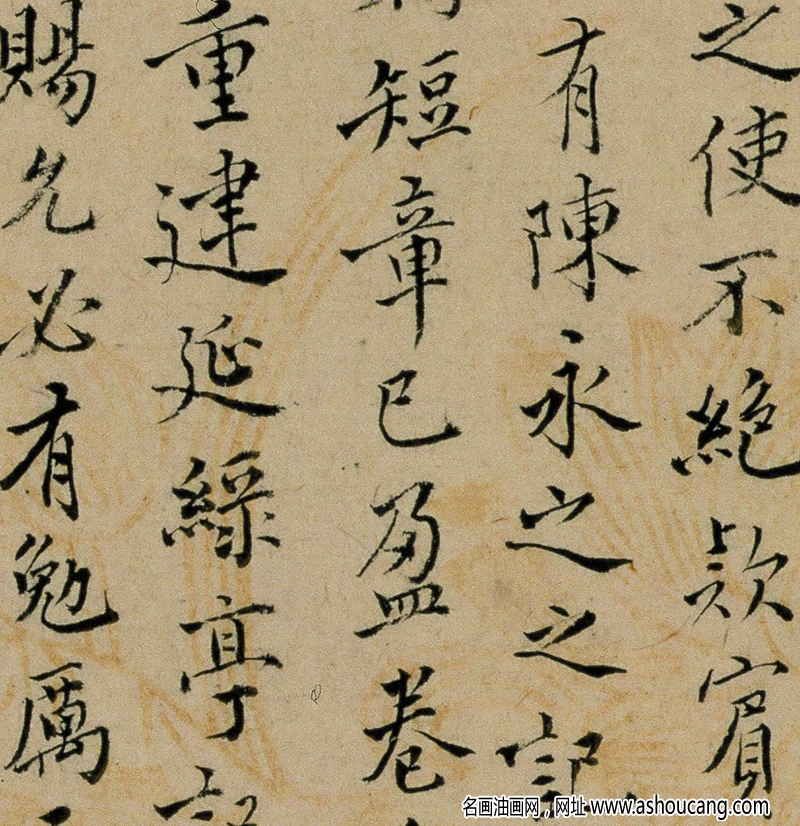 之使不絕欵賓
有陳永之之記
短章已盈卷
重建延綠亭記
賜允必有勉厲
名画油画网，网址 www.ashoucang.com